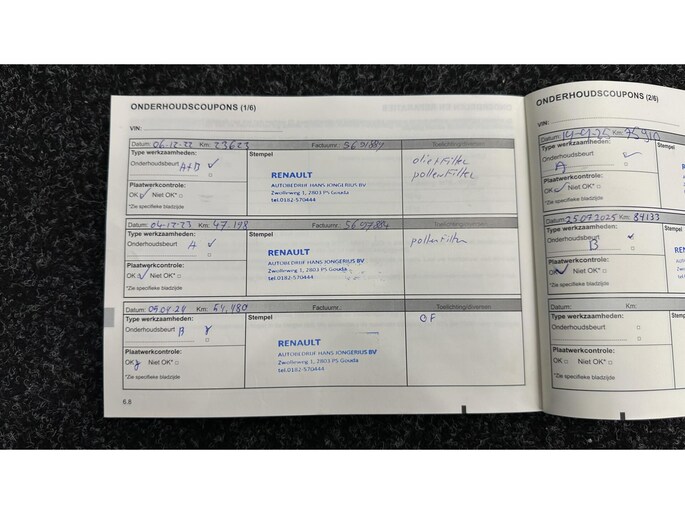 ONDERHOUDSCOUPONS (1/6)
VIN:
Datum: 06.12-22 Km: 23623 Factuurnr.: 5691887 Toelichting/diversen
Type werkzaamheden: Stempel
Onderhoudsbeurt A+B
RENAULT
AUTOBEDRIJF HANS JONGERIUS BV
Zwolleweg 1, 2803 PS Gouda
tel.0182-570444
oliefilter
pollenfilter
Plaatwerkcontrole:
OK Niet OK*
*Zie specifieke bladzijde
Datum: 04-12-23 Km: 47.198 Factuurnr.: Toelichting/diversen
Type werkzaamheden: Stempel
Onderhoudsbeurt A
RENAULT
AUTOBEDRIJF HANS JONGERIUS BV
Zwolleweg 1, 2803 PS Gouda
tel.0182-570444
pollenfilter
Plaatwerkcontrole:
OK Niet OK*
*Zie specifieke bladzijde
Datum: Km: 54,480 Factuurnr.: Toelichting/diversen
Type werkzaamheden: Stempel
Onderhoudsbeurt B
RENAULT
AUTOBEDRIJF HANS JONGERIUS BV
Zwolleweg 1, 2803 PS Gouda
tel.0182-570444
OF
Plaatwerkcontrole:
OK Niet OK*
*Zie specifieke bladzijde
6.8
ONDERHOUDSCOUPONS (2/6)
VIN:
Datum: Km: 75910
Type werkzaamheden:
Onderhoudsbeurt
A
Plaatwerkcontrole:
OK Niet OK*
*Zie specifieke bladzijde
Datum: 25.07.2025 Km: 84133
Type werkzaamheden:
Onderhoudsbeurt
B
Plaatwerkcontrole:
OK Niet OK*
*Zie specifieke bladzijde
Datum: Km:
Type werkzaamheden:
Onderhoudsbeurt
Plaatwerkcontrole:
OK Niet OK*
*Zie specifieke bladzijde